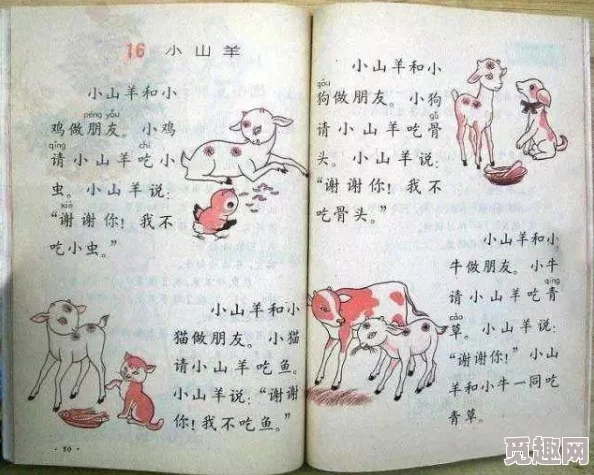 16 小山羊
小山羊和小
péng yǒu
鸡做朋友。小鸡
qǐng chī
请小山羊吃小
虫。小山羊说:
xiè
“谢谢你!我不
吃小虫。”
小山羊和小
猫做朋友。小猫
请小山羊吃鱼。
小山羊说:“谢谢
你!我不吃鱼。”
小山羊和小
gǒu
狗做朋友。小狗
gǔ
请小山羊吃骨
头。小山羊说:
“谢谢你!我不
吃骨头。”
小山羊和小
牛做朋友。小牛
qīng
请小山羊吃青
cǎo
草。小山羊说:
“谢谢你!”小山
羊和小牛一同吃
青草。
觅趣网